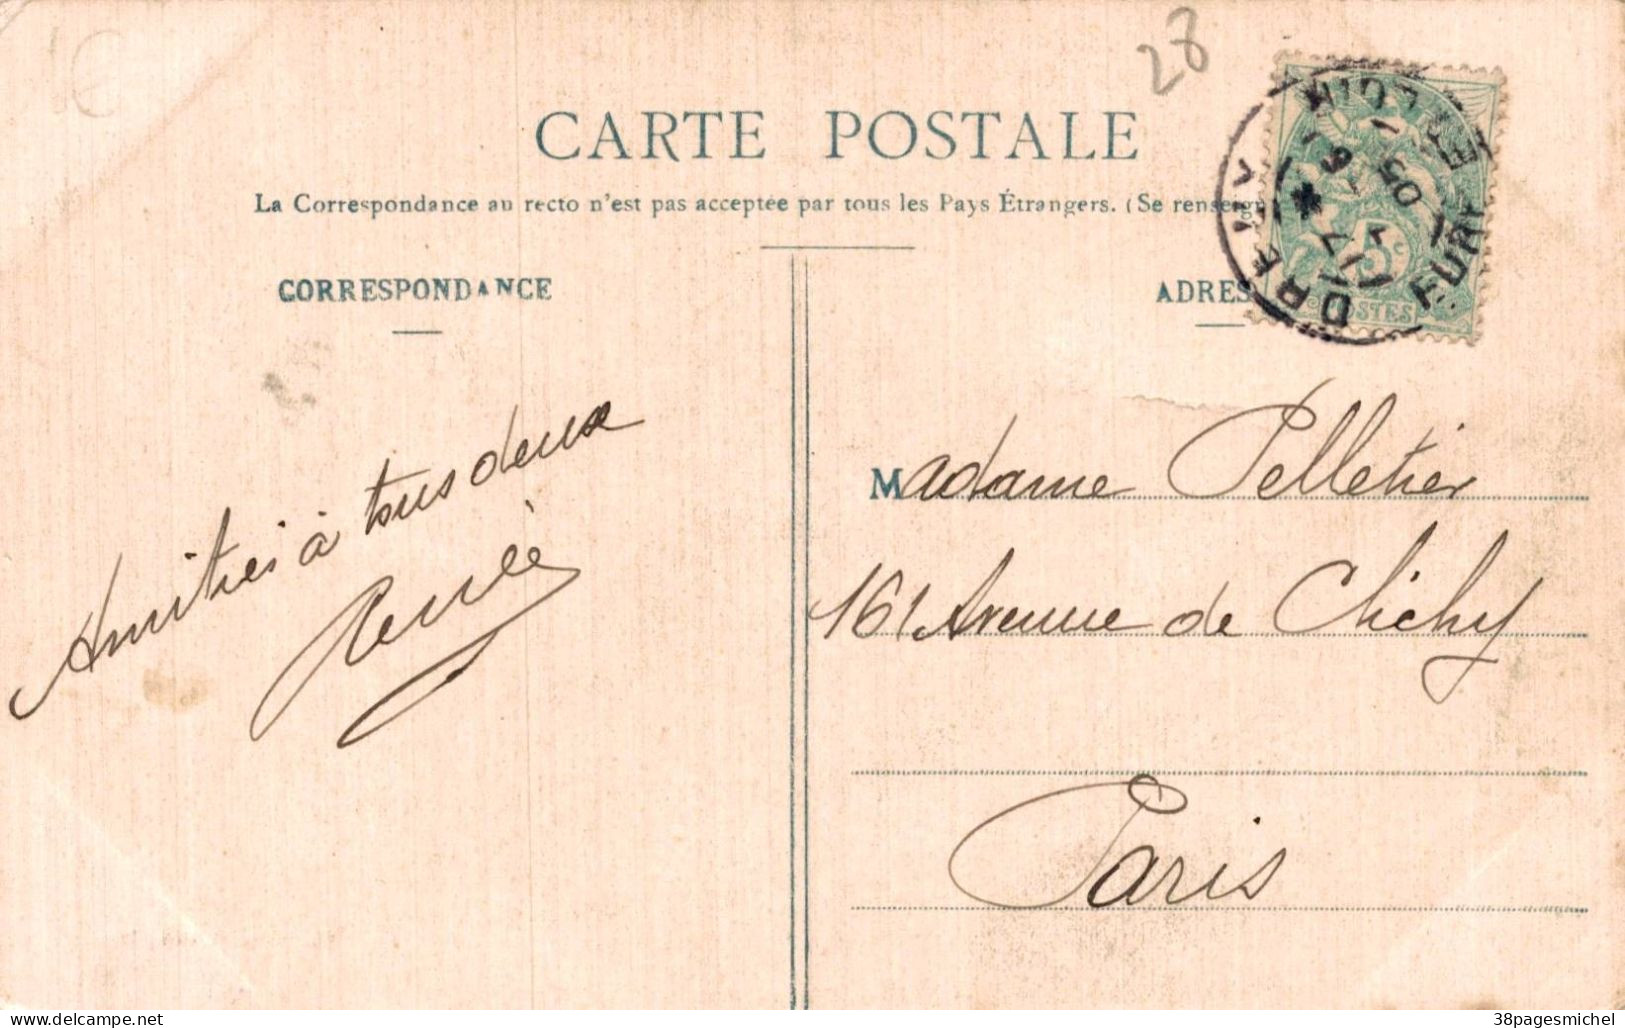 28
CARTE POSTALE
La Correspondance au recto n'est pas acceptée par tous les Pays Étrangers. (Se renseign
CORRESPONDANCE
ADRES
5c
POSTES
05
EURE
Amitiés à tous deux
Renée
Madame Pelletier
161 Avenue de Clichy
Paris
delcampe.net
38pagesmichel